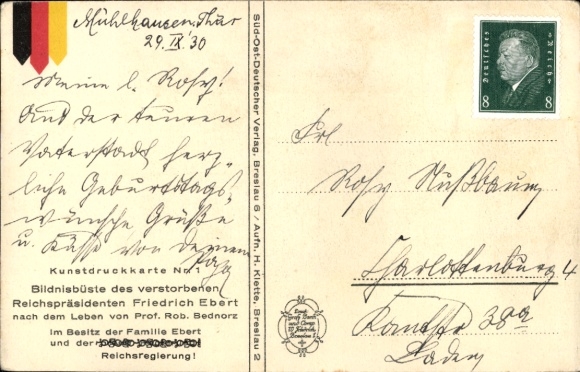 Mühlhausen Thür
29.IX.30
Meine l. Rosy!
Aus der teuren
Vaterstadt herz-
liche Geburtstags-
wünsche Grüße
u. Küsse von deinem
Kunstdruckkarte Nr. 1
Bildnisbüste des verstorbenen
Reichspräsidenten Friedrich Ebert
nach dem Leben von Prof. Rob. Bednorz
im Besitz der Familie Ebert
und der
Reichsregierung!
Süd-Ost-Deutscher Verlag, Breslau 6 / Aufn. H. Klette, Breslau 2
Deutsches Reich
8 8
Frl
Rosy Nußbaum
Charlottenburg 4
Kantstr 38a
Laden